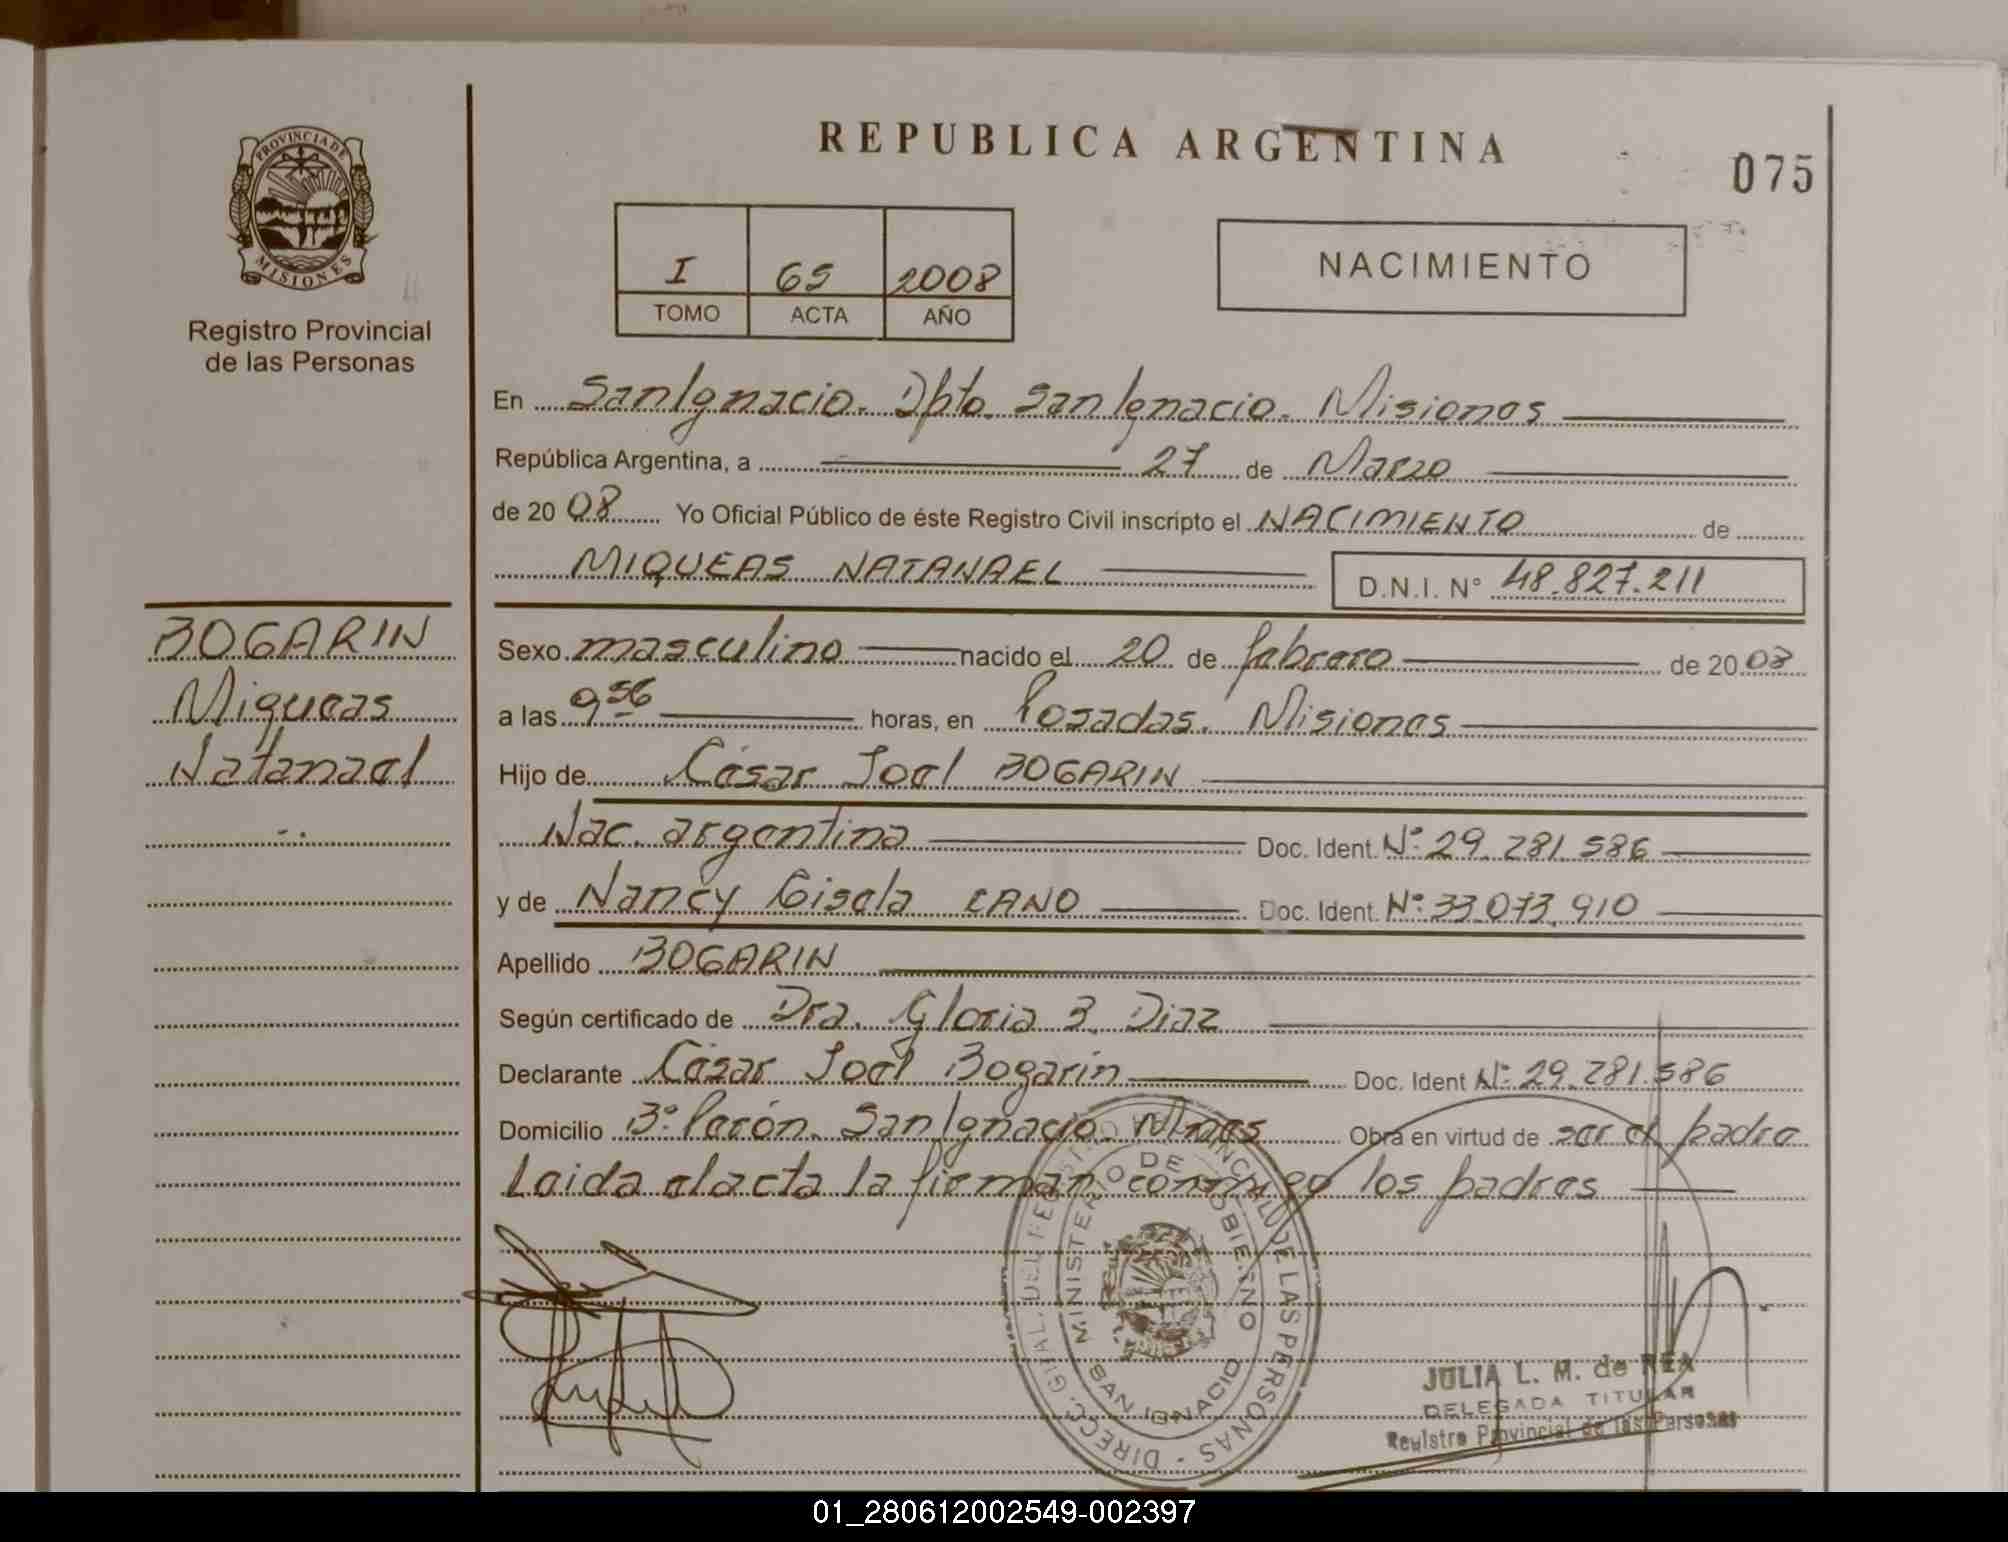 REPUBLICA ARGENTINA
075
PROVINCIA DE
MISIONES
Registro Provincial
de las Personas
I 65 2008
TOMO ACTA AÑO
NACIMIENTO
En San Ignacio. Dpto. San Ignacio. Misiones
República Argentina, a 27 de Marzo
de 2008 Yo Oficial Público de éste Registro Civil inscripto el NACIMIENTO de
MIQUEAS NATANAEL D.N.I. N° 48.827.211
BOGARIN
Miqueas
Natanael
Sexo masculino nacido el 20 de febrero de 2008
a las 9 56 horas, en Posadas. Misiones
Hijo de César Joel BOGARIN
Nac. argentina Doc. Ident. N°: 29.281.586
y de Nancy Gisela CANO Doc. Ident. N°: 33.073.910
Apellido BOGARIN
Según certificado de Dra. Gloria B. Diaz
Declarante César Joel Bogarín Doc. Ident N°: 29.281.586
Domicilio B° Perón. San Ignacio. Mnes Obra en virtud de ser el padre
Leida el acta la firman conmigo los padres
DIRECC. GRAL. DEL REGISTRO PROVINCIAL DE LAS PERSONAS -
MINISTERIO DE GOBIERNO
SAN IGNACIO
JULIA L. M. de REA
DELEGADA TITULAR
Registro Provincial de las Personas
01_280612002549-002397